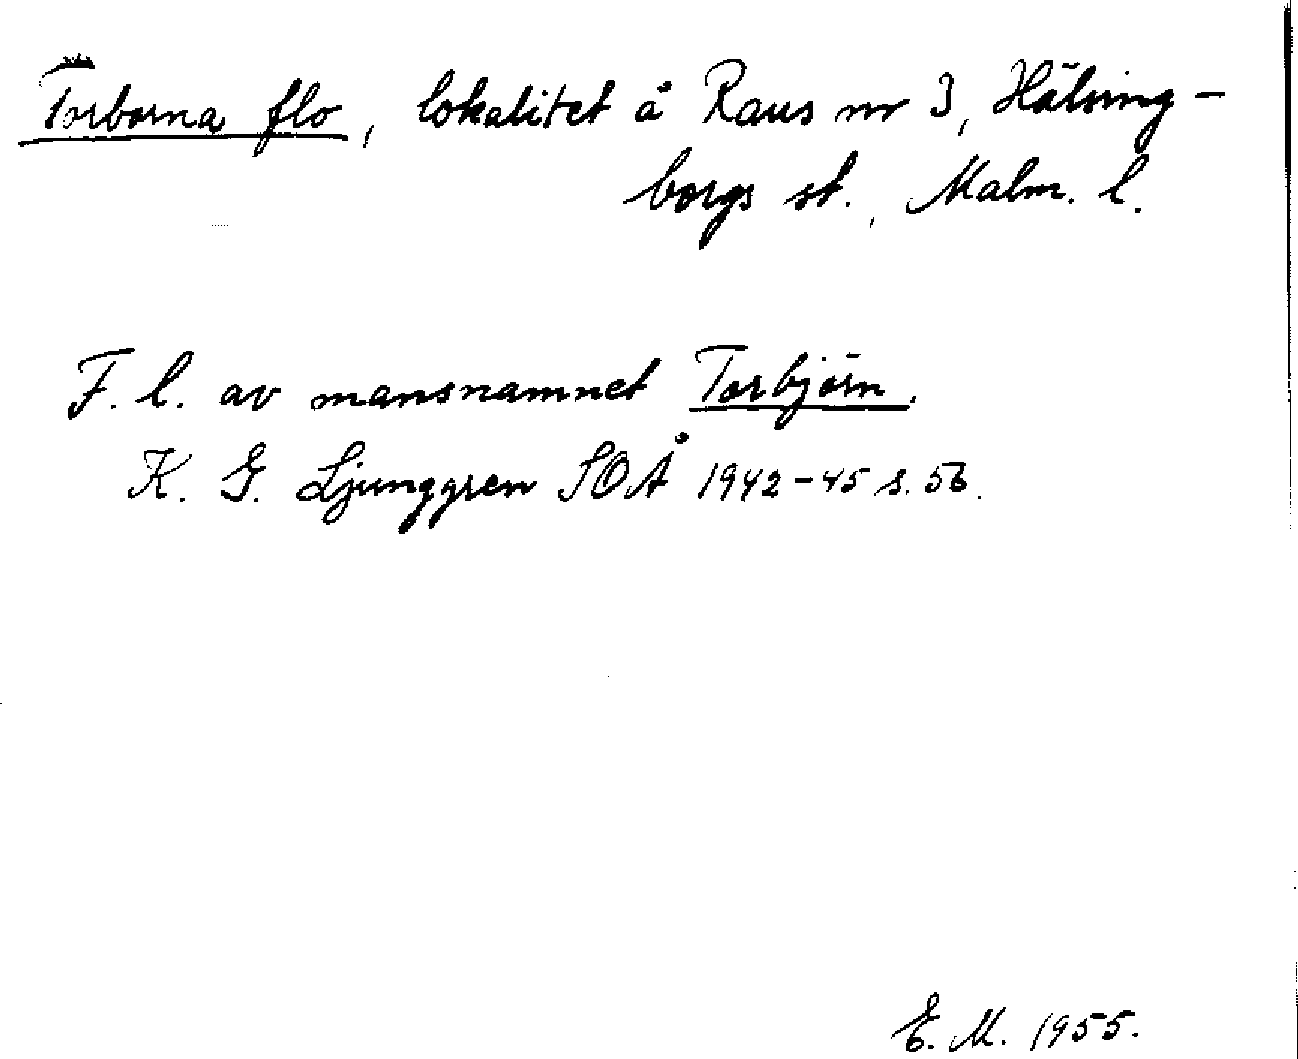 Torborna flo, lokalitet å Raus nr 3, Hälsing-
borgs st., Malm. l.
F. l. av mansnamnet Torbjörn.
K. G. Ljunggren SOÅ 1942-45 s. 56.
E. M. 1955.